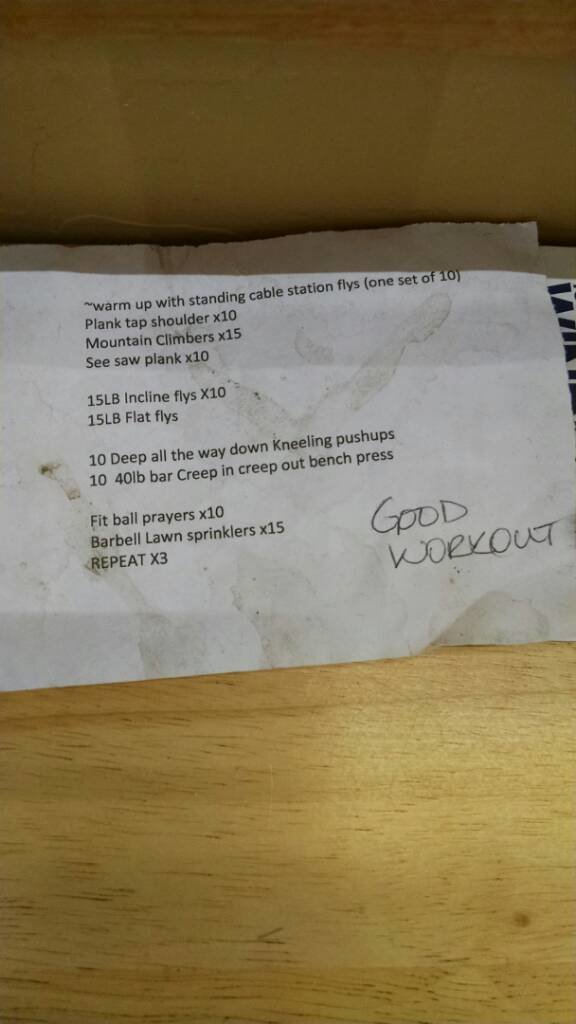 ~warm up with standing cable station flys (one set of 10)
Plank tap shoulder x10
Mountain Climbers x15
See saw plank x10
15LB Incline flys X10
15LB Flat flys
10 Deep all the way down Kneeling pushups
10 40lb bar Creep in creep out bench press
Fit ball prayers x10
Barbell Lawn sprinklers x15
REPEAT X3
GOOD
WORKOUT